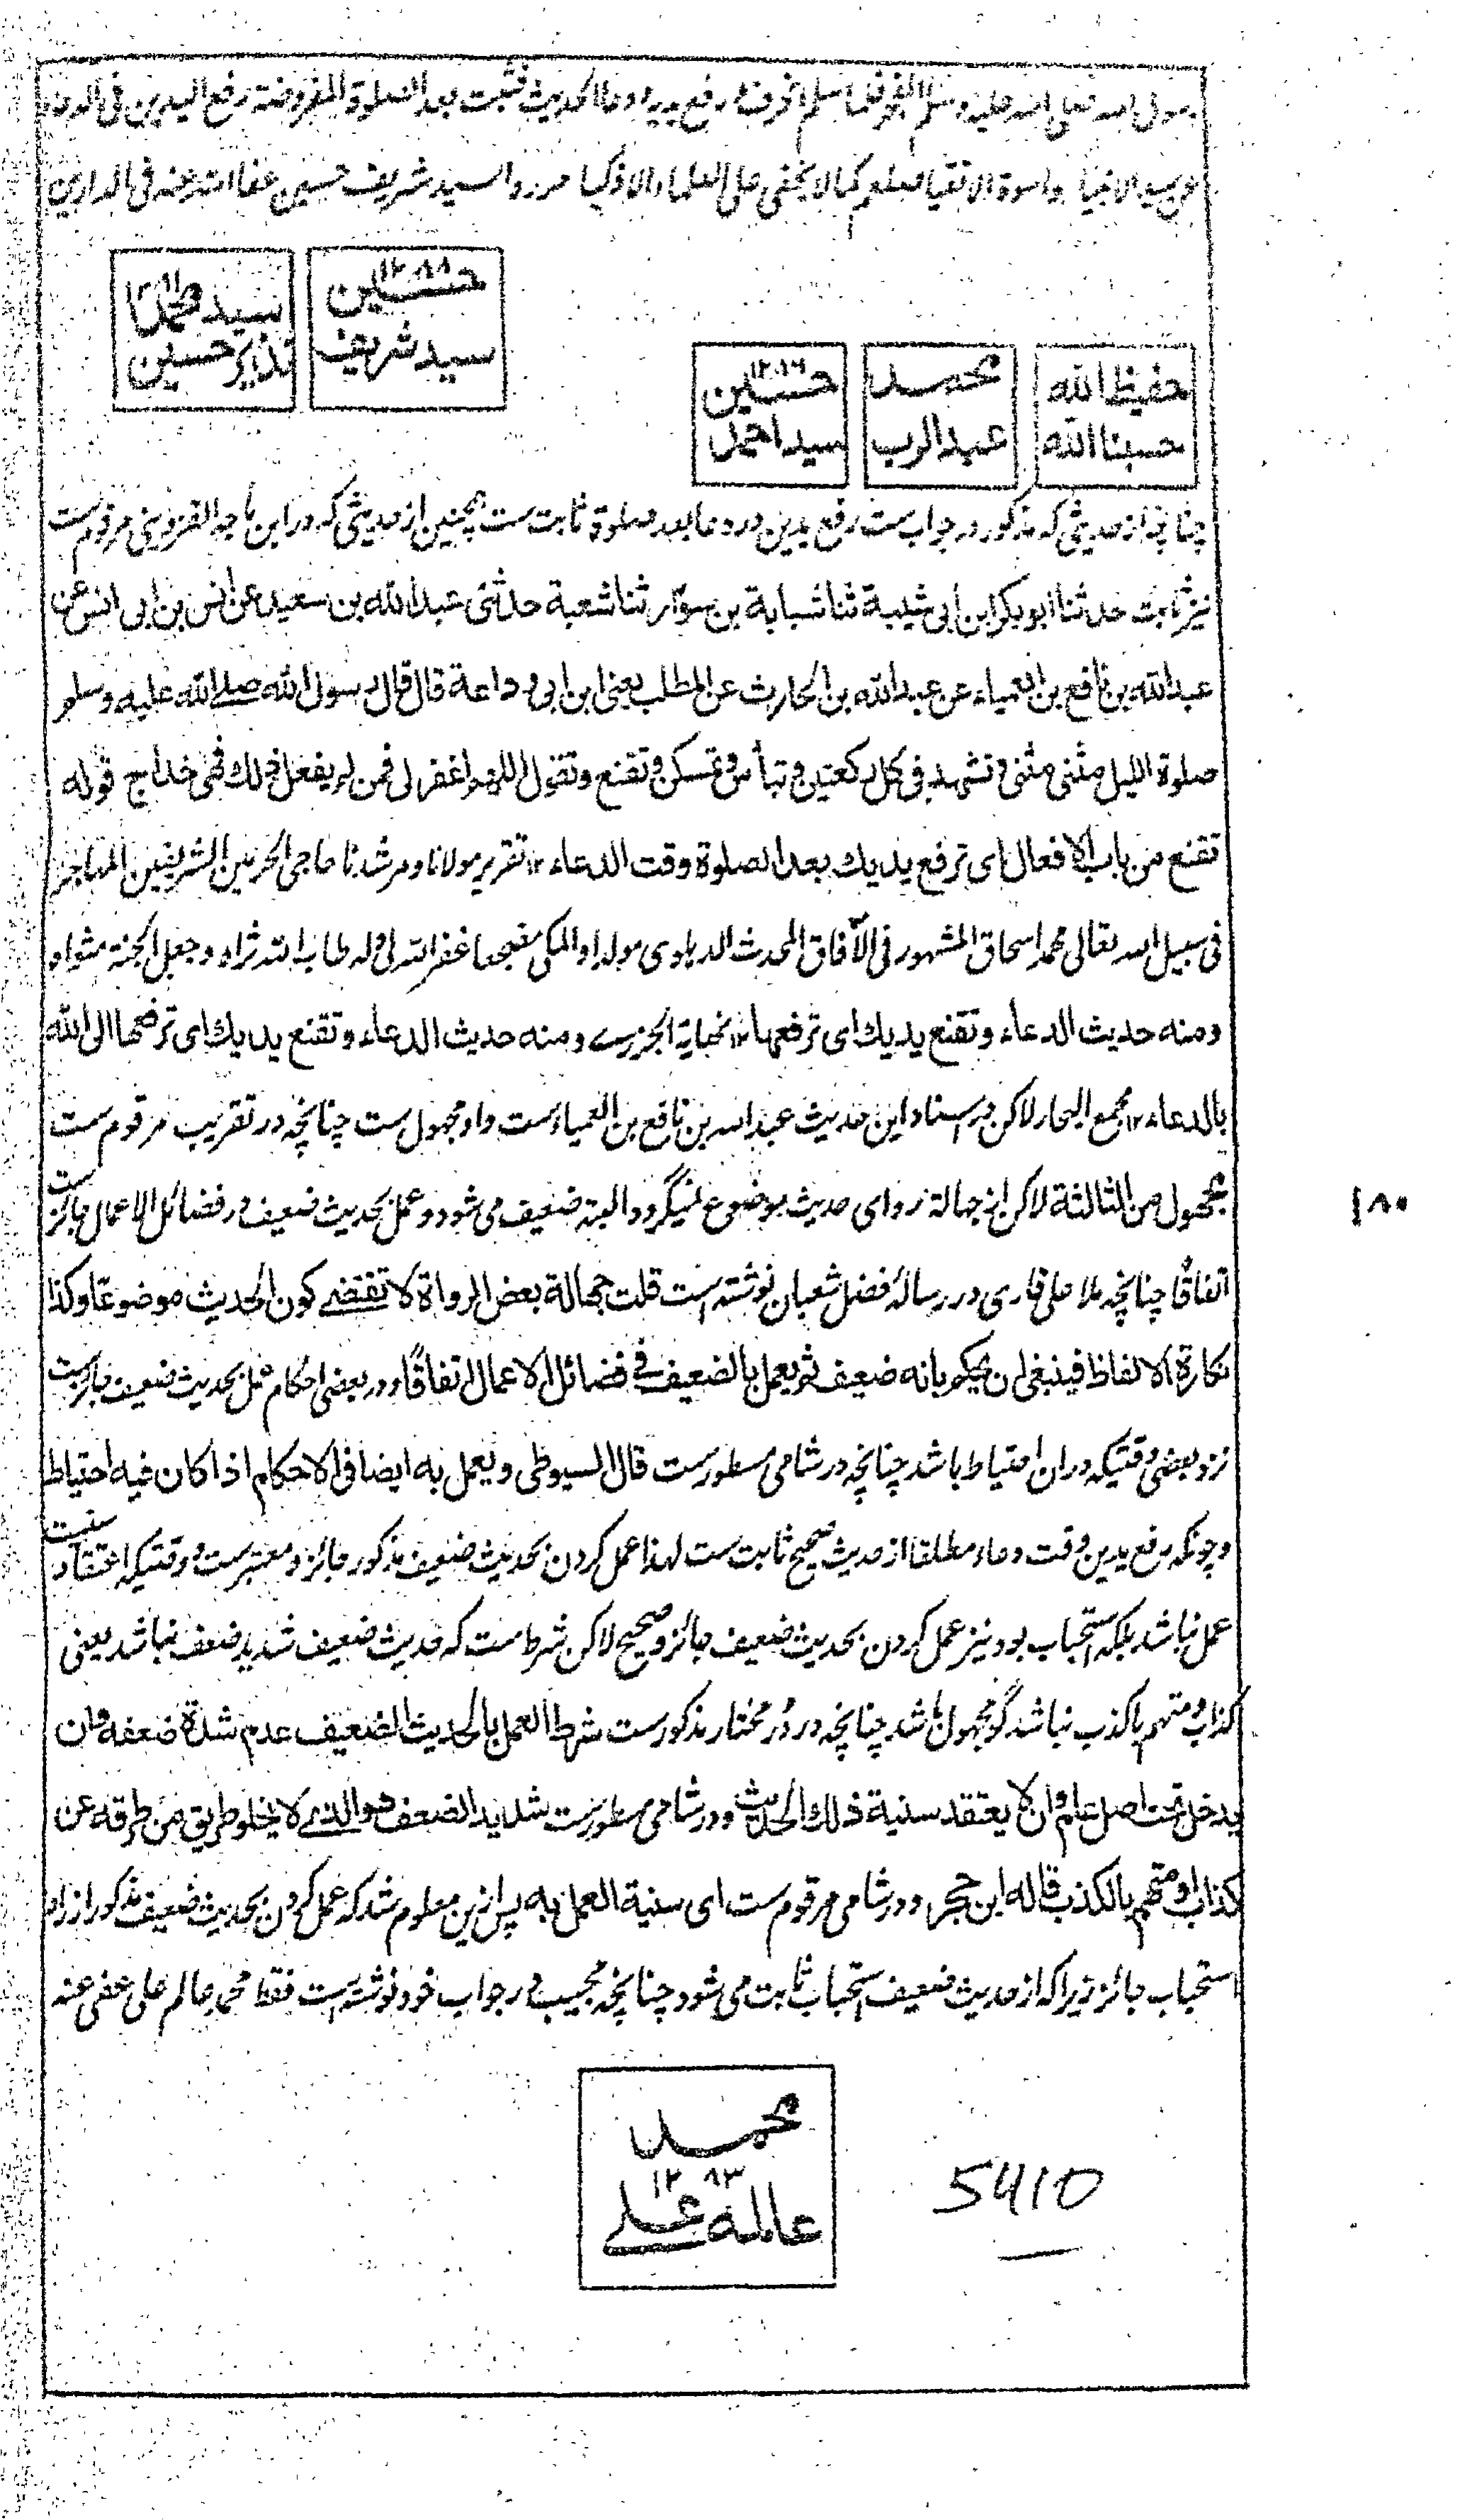 رسول الله صلى الله عليه وسلم الفجر فلما سلم انحرف و رفع يديه ودعا الحديث فثبت بعد الصلوة المفروضة رفع اليدين فى الدعاء
عن سيد الانبيا واسوة الاتقيا صلعم كما لا يخفى على العلماء الاذكيا حرره السيد شريف حسين عفا الله عنه فى الدارين
حسين ١٢٨٨ سيد شريف
سيد محمد نذير حسين
حفيظ الله حسبنا الله
محمد عبد الرب
حسين ١٢٨٦ سيد احمد
چنانچه از حديثى كه مذكور در جواب ست رفع يدين در دعا بعد صلوة ثابت ست همچنين از حديثى كه در ابن ماجه القزوينى مرقوم ست
نيز ثابت حدثنا ابو بكر ابن ابى شيبة ثنا شبابة بن سوار ثنا شعبة حدثنى عبد الله بن سعيد عن انس بن ابى انس عن
عبد الله بن نافع بن العمياء عن عبد الله بن الحارث عن المطلب يعنى ابن ابى وداعة قال قال رسول الله صلے الله عليه وسلم
صلوة الليل مثنى مثنى وتشهد فى كل ركعتين وتبأس وتمسكن وتقنع وتقول اللهم اغفر لى فمن لم يفعل ذلك فهى خداج قوله
تقنع من باب الافعال اى ترفع يديك بعد الصلوة وقت الدعاء ١٢ تقرير مولانا ومرشدنا حاجى الحرمين الشريفين المهاجر
فى سبيل الله تعالى محمد اسحاق المشهور فى الآفاق المحدث الدهلوى مولدا والمكى مضجعا غفر الله لى وله طاب الله ثراه وجعل الجنة مثواه
ومنه حديث الدعاء وتقنع يديك اى ترفعهما ١٢ نهاية الجزرے ومنه حديث الدعاء وتقنع يديك اى ترفعهما الى الله
بالدعاء ١٢ مجمع البحار لاكن در اسناد اين حديث عبد الله بن نافع بن العمياء ست واو مجهول ست چنانچه در تقريب مرقوم ست
مجهول من الثالثة لاكن از جهالة رواى حديث موضوع نميگردد البته ضعيف مى شود و عمل بحديث ضعيف در فضائل الاعمال جائز ست
اتفاقًا چنانچه ملا على قارى در رسالۂ فضل شعبان نوشته است قلت جهالة بعض الرواة لا تقتضے كون الحديث موضوعًا وكذا
نكارة الالفاظ فينبغى ان يحكم بانه ضعيف ثم يعمل بالضعيف فے فضائل الاعمال اتفاقًا و در بعضى احكام عمل بحديث ضعيف جائز ست
نزد بعضى وقتيكه دران احتياط باشد چنانچه در شامى مسطور ست قال السيوطى ويعمل به ايضا فى الاحكام اذا كان فيه احتياط
و چونكه رفع يدين وقت دعاء مطلقا از حديث صحيح ثابت ست لهذا عمل كردن بحديث ضعيف مذكور جائز و معتبر ست و وقتيكه اعتقاد سنيت
عمل نباشد بلكه استحباب بود نيز عمل كردن بحديث ضعيف جائز و صحيح لاكن شرط ست كه حديث ضعيف شديد ضعف نباشد يعنى
كذاب و متهم باكذب نباشد گو مجهول باشد چنانچه در در مختار مذكور ست شرط العمل بالحديث الضعيف عدم شدة ضعفه وان
يدخل تحت اصل عام وان لا يعتقد سنية ذلك الحديث و در شامى مسطور ست شديد الضعف هو الذے لا يخلو طريق من طرقه عن
كذاب او متهم بالكذب قاله ابن حجر و در شامى مرقوم ست اى سنية العمل به پس ازين معلوم شد كه عمل كردن بحديث ضعيف مذكور از راه
استحباب جائز زيرا كه از حديث ضعيف استحباب ثابت مى شود چنانچه مجيب در جواب خود نوشته است فقط محمد عالم على عفى عنه
محمد ١٢٨٣ عالم على
5410
١٨٠